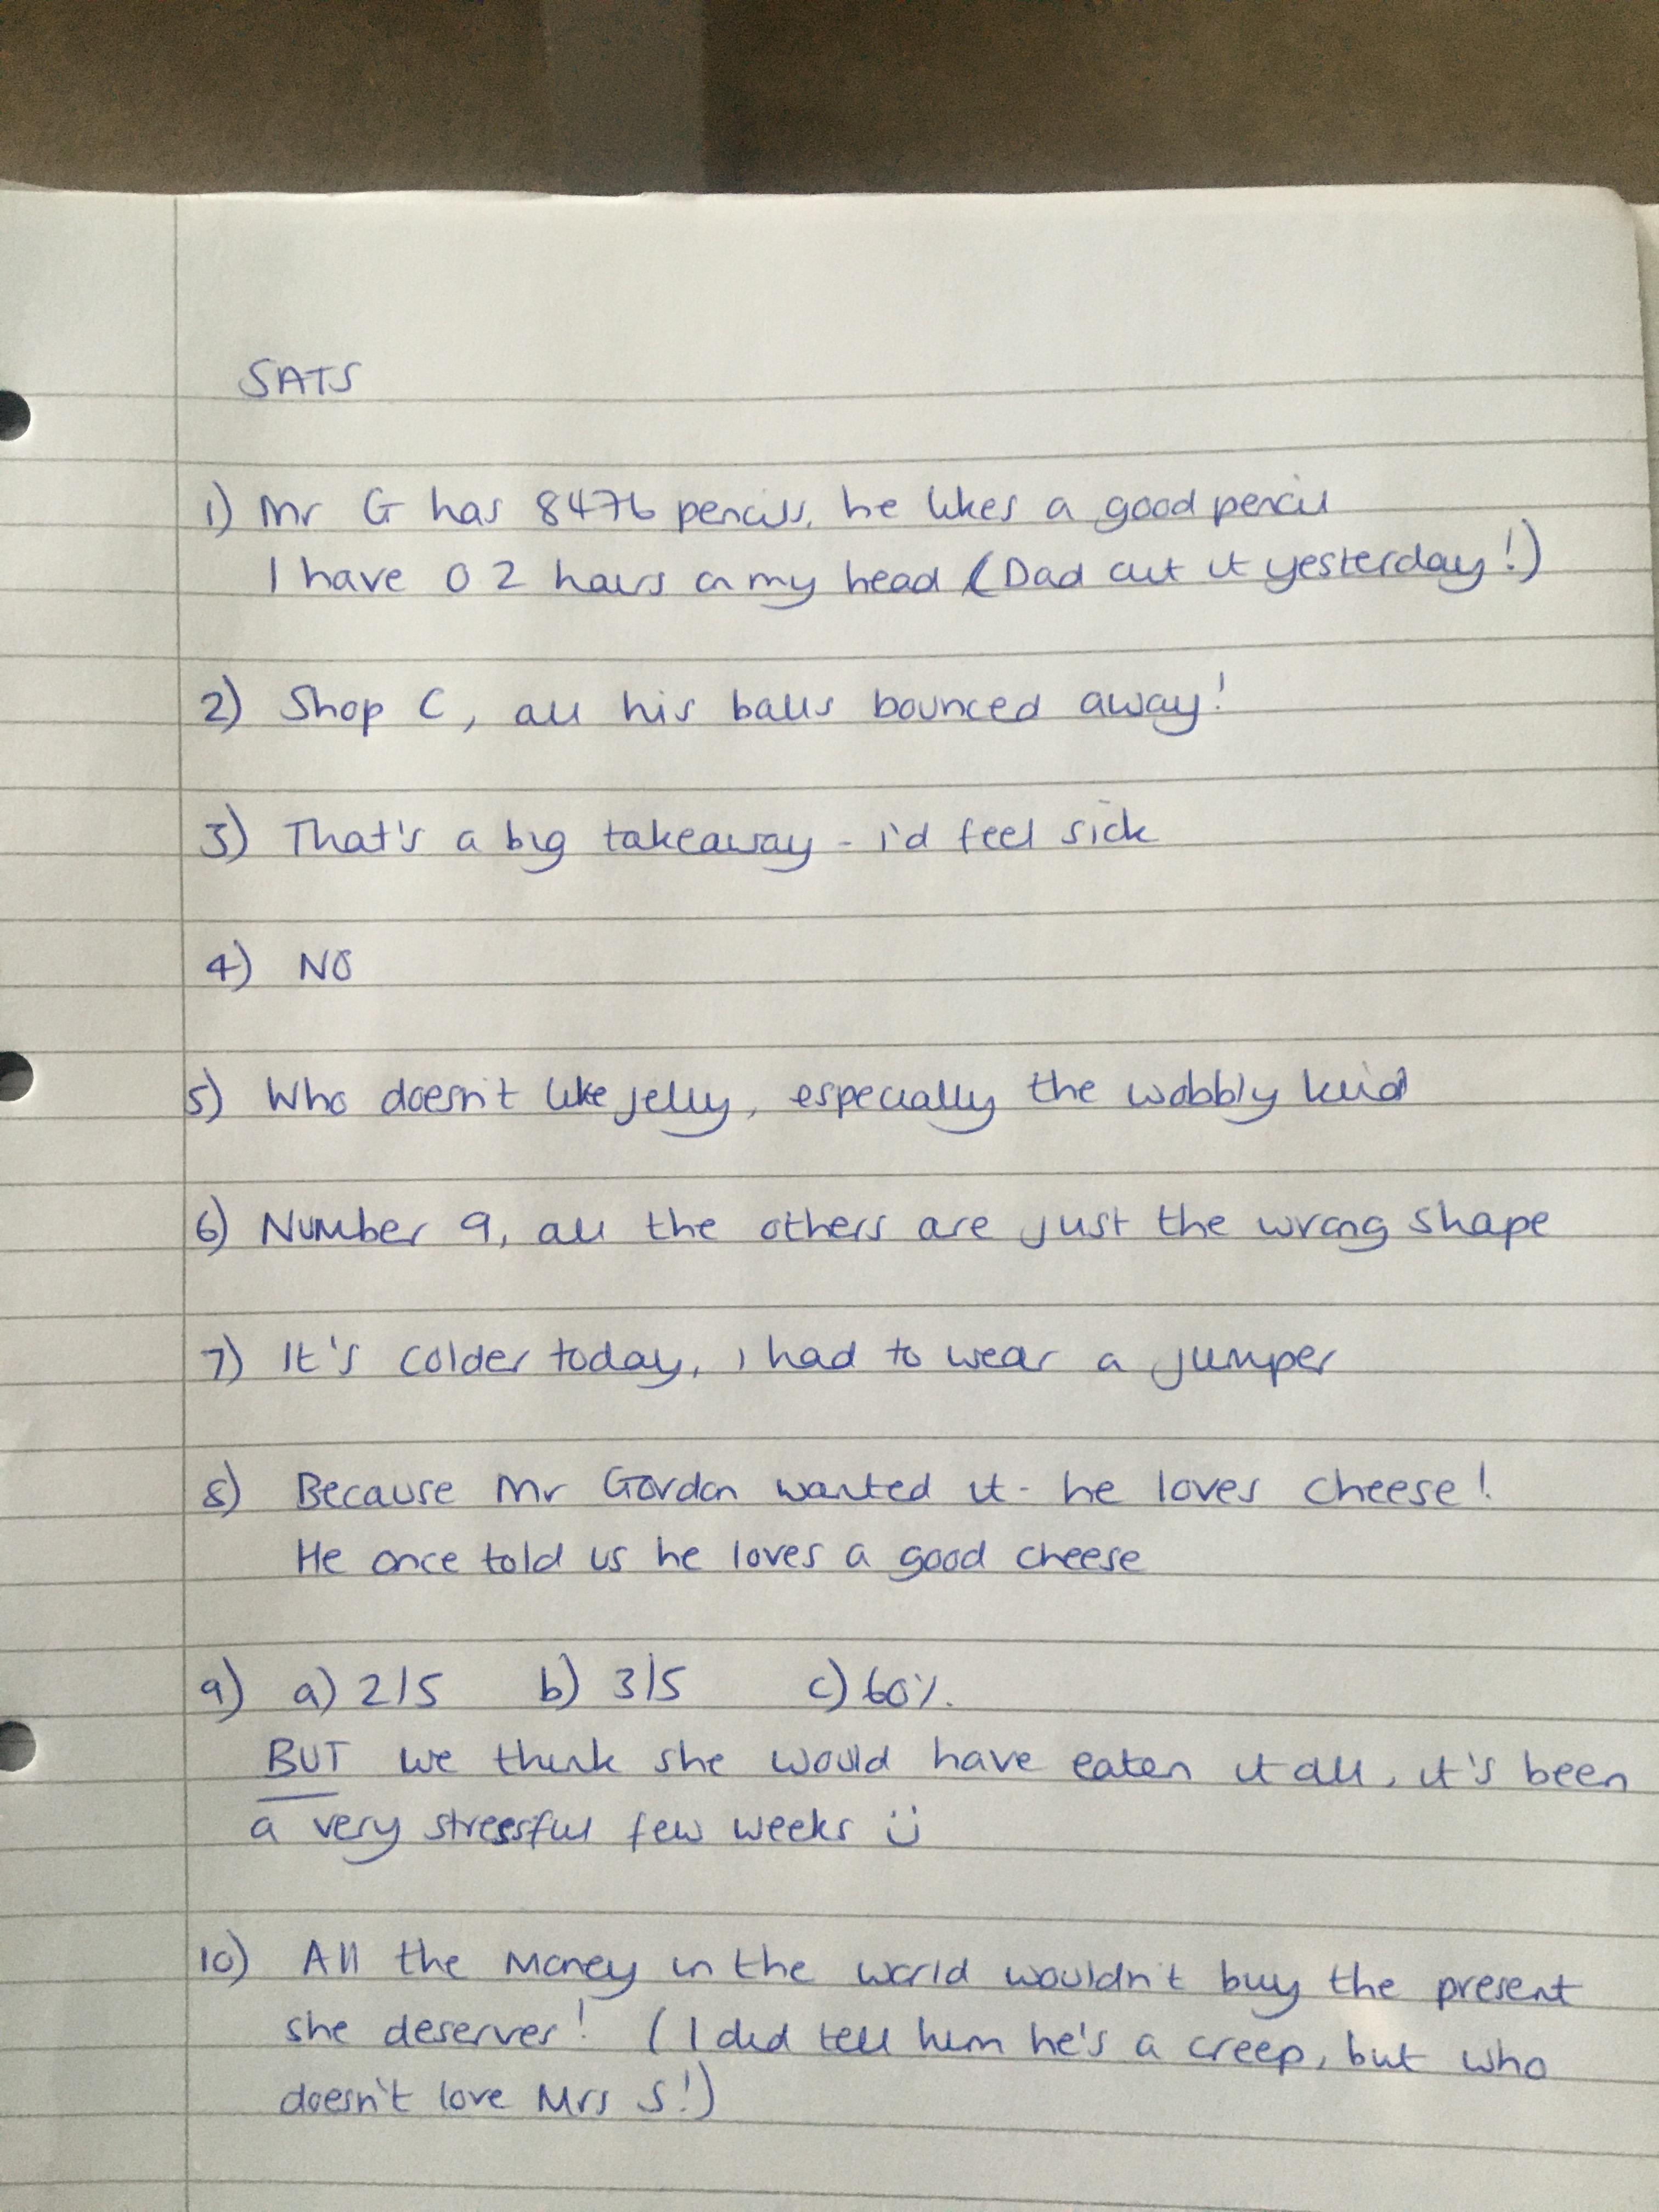 SATS
1) Mr G has 8476 pencils, he likes a good pencil
I have 0 2 hairs on my head (Dad cut it yesterday!)
2) Shop C, all his balls bounced away!
3) That's a big takeaway - i'd feel sick
4) NO
5) Who doesn't like jelly, especially the wobbly kind
6) Number 9, all the others are just the wrong shape
7) It's colder today, i had to wear a jumper
8) Because Mr Gordon wanted it - he loves cheese!
He once told us he loves a good cheese
9) a) 2/5 b) 3/5 c) 60%.
BUT we think she would have eaten it all, it's been
a very stressful few weeks ü
10) All the money in the world wouldn't buy the present
she deserves! (I did tell him he's a creep, but who
doesn't love Mrs S!)